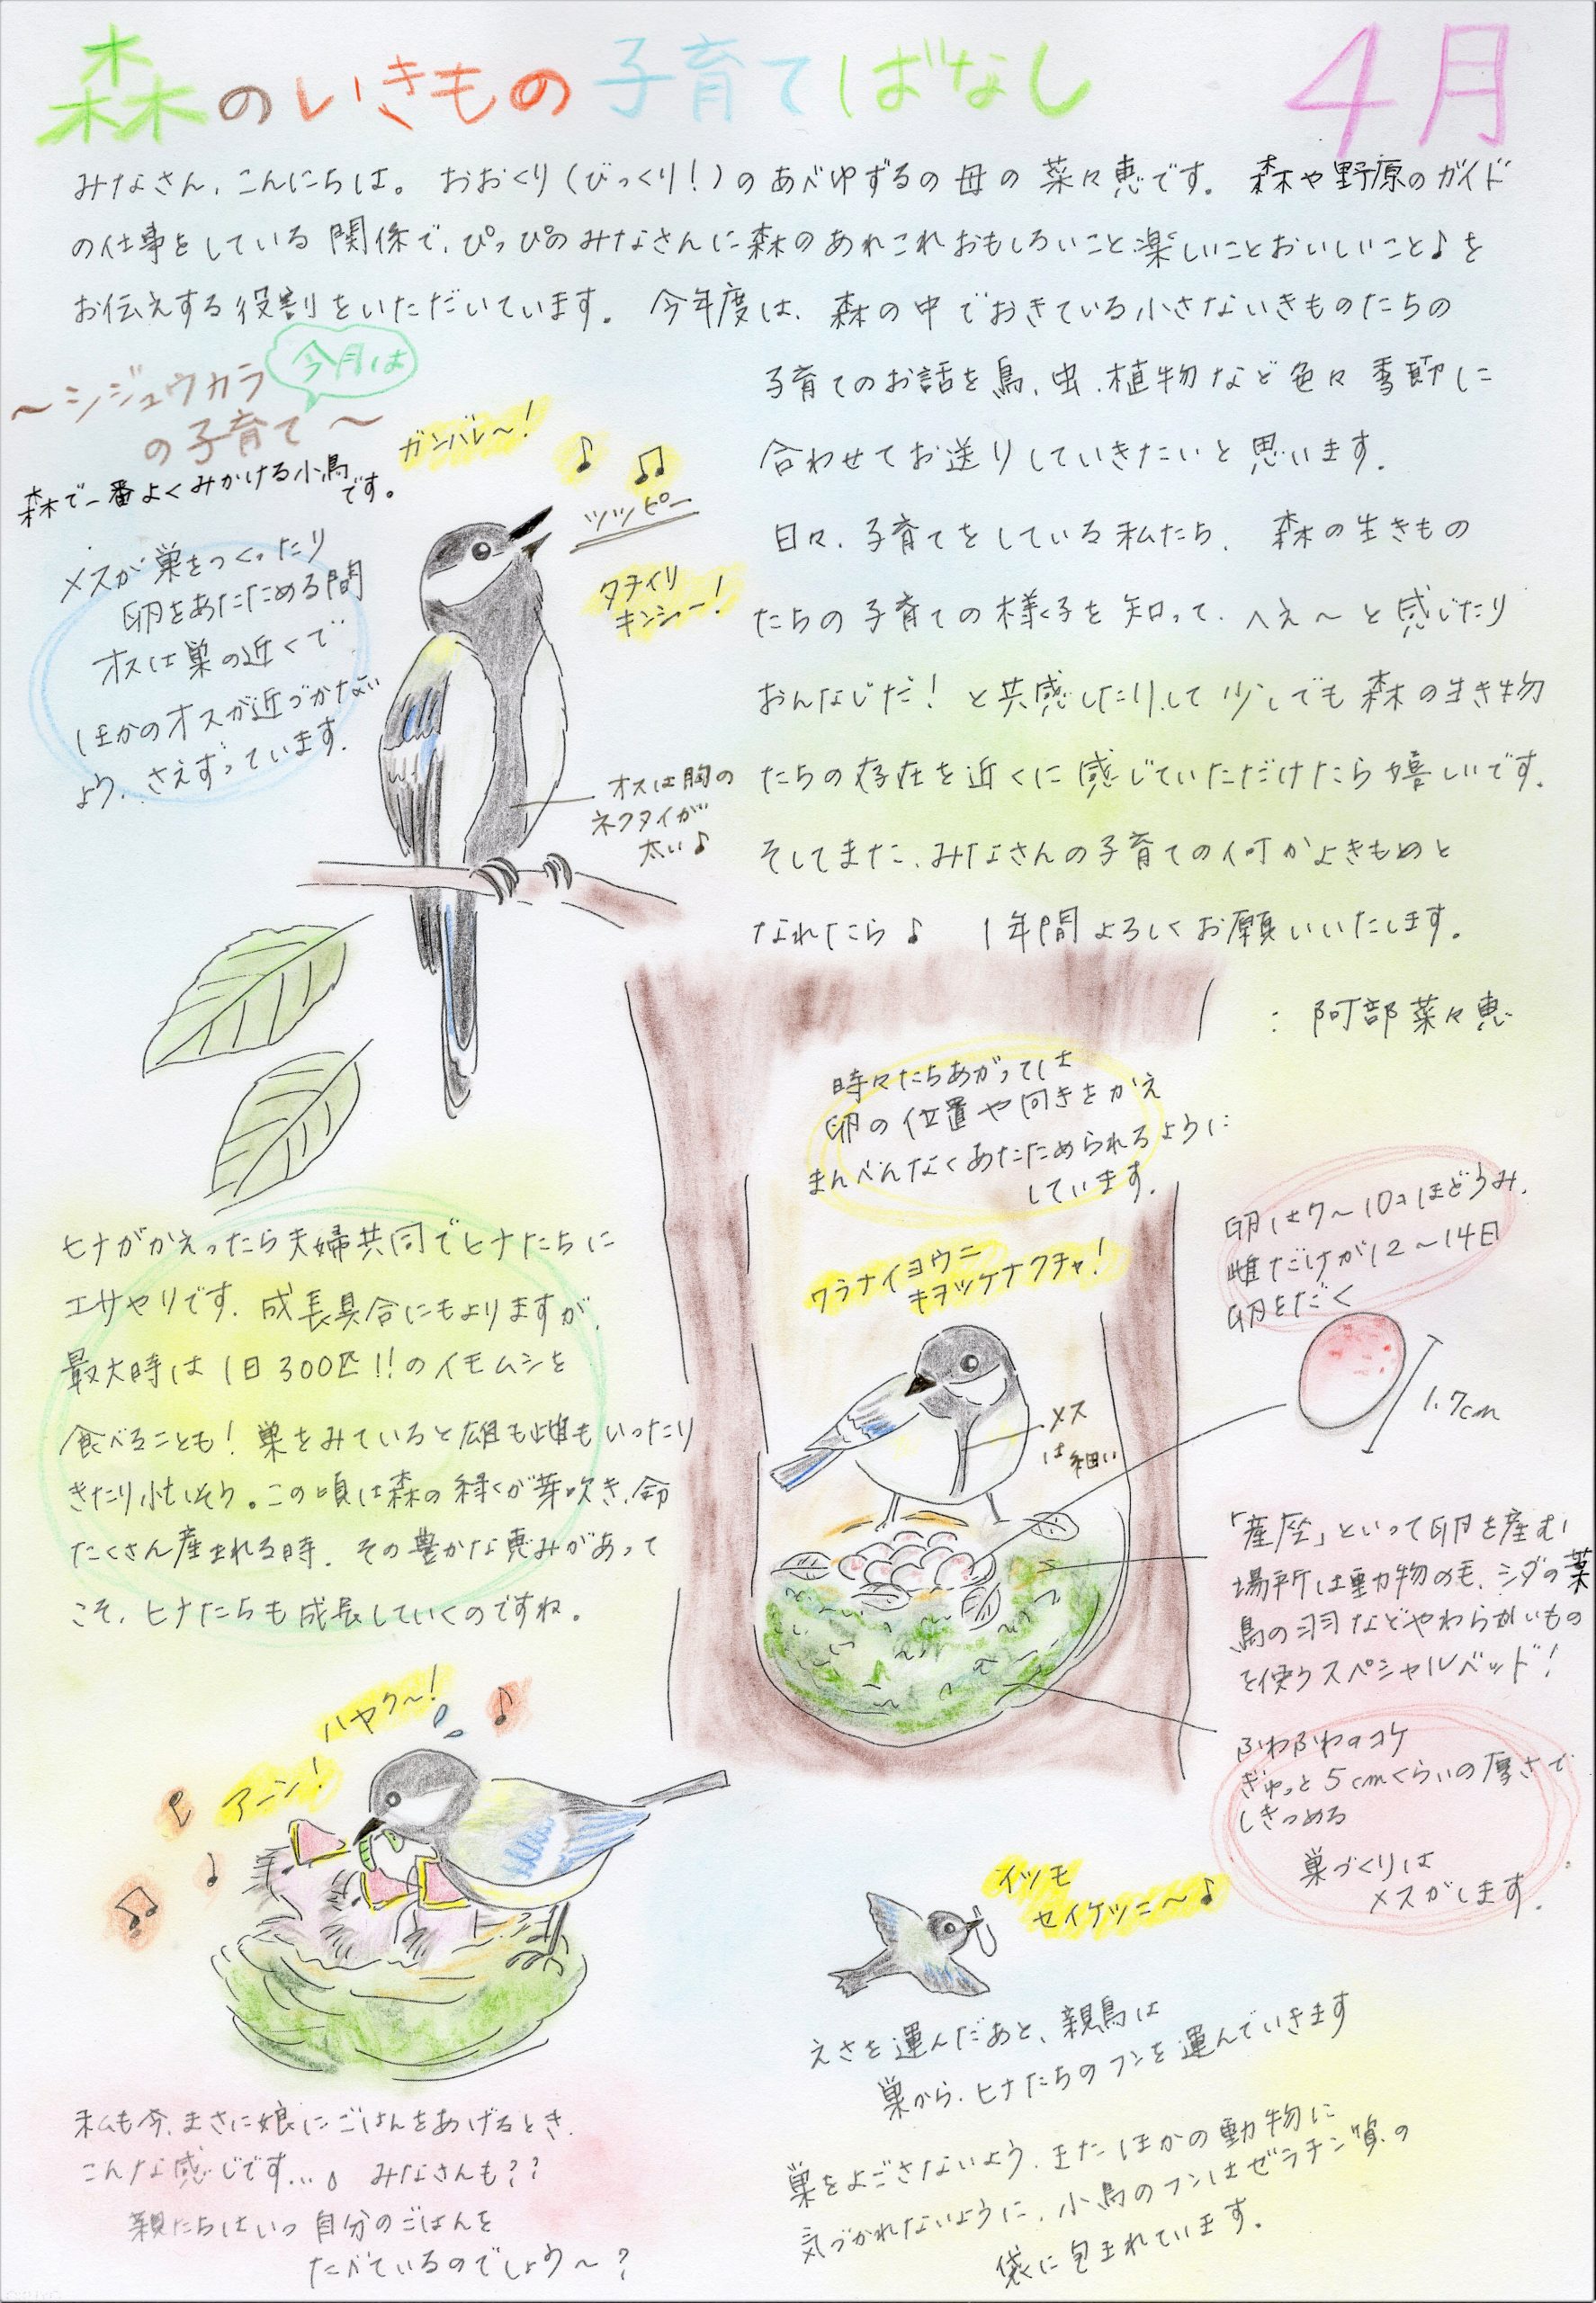 森のいきもの子育てばなし 4月
みなさん、こんにちは。おおくり(びっくり!)のあべゆずるの母の菜々恵です。森や野原のガイド
の仕事をしている関係で、ぴっぴのみなさんに森のあれこれおもしろいこと楽しいことおいしいこと♪を
お伝えする役割をいただいています。今年度は、森の中でおきている小さないきものたちの
子育てのお話を鳥、虫、植物など色々季節に
合わせてお送りしていきたいと思います。
日々、子育てをしている私たち、森の生きもの
たちの子育ての様子を知って、へえ〜と感じたり
おんなじだ!と共感したりして少しでも森の生き物
たちの存在を近くに感じていただけたら嬉しいです。
そしてまた、みなさんの子育ての何かよきもめと
なれたら♪ 1年間よろしくお願いいたします。
:阿部菜々恵
今月は
〜シジュウカラ
の子育て〜
森で一番よくみかける小鳥
です。
メスが巣をつくったり
卵をあたためる間
オスは巣の近くで
ほかのオスが近づかない
よう、さえずっています。
ガンバレ〜!
♪ ♫
ツツピー
タチイリ
キンシー!
オスは胸の
ネクタイが
太い♪
時々たちあがっては
卵の位置や向きをかえ
まんべんなくあたためられるように
しています。
ワラナイヨウニ
キヲツケナクチャ!
メス
は細い
卵は7〜10コほどうみ、
雌だけが12〜14日
卵をだく
1.7cm
「産座」といって卵を産む
場所は動物の毛、シダの葉
鳥の羽などやわらかいもの
を使うスペシャルベッド!
ふわふわのコケ
ぎゅっと5cmくらいの厚さで
しきつめる
巣づくりは
メスがします。
ヒナがかえったら夫婦共同でヒナたちに
エサやりです。成長具合にもよりますが、
最大時は1日300匹!!のイモムシを
食べることも!巣をみていると雄も雌もいったり
きたり忙しそう。この頃は森の緑が芽吹き、命
たくさん産まれる時。その豊かな恵みがあって
こそ、ヒナたちも成長していくのですね。
ハヤク〜!
アーン!
イツモ
セイケツニ〜♪
えさを運んだあと、親鳥は
巣から、ヒナたちのフンを運んでいきます
巣をよごさないよう、またほかの動物に
気づかれないように、小鳥のフンはゼラチン質の
袋に包まれています。
私も今、まさに娘にごはんをあげるとき、
こんな感じです…。みなさんも??
親たちはいつ自分のごはんを
たべているのでしょう〜?